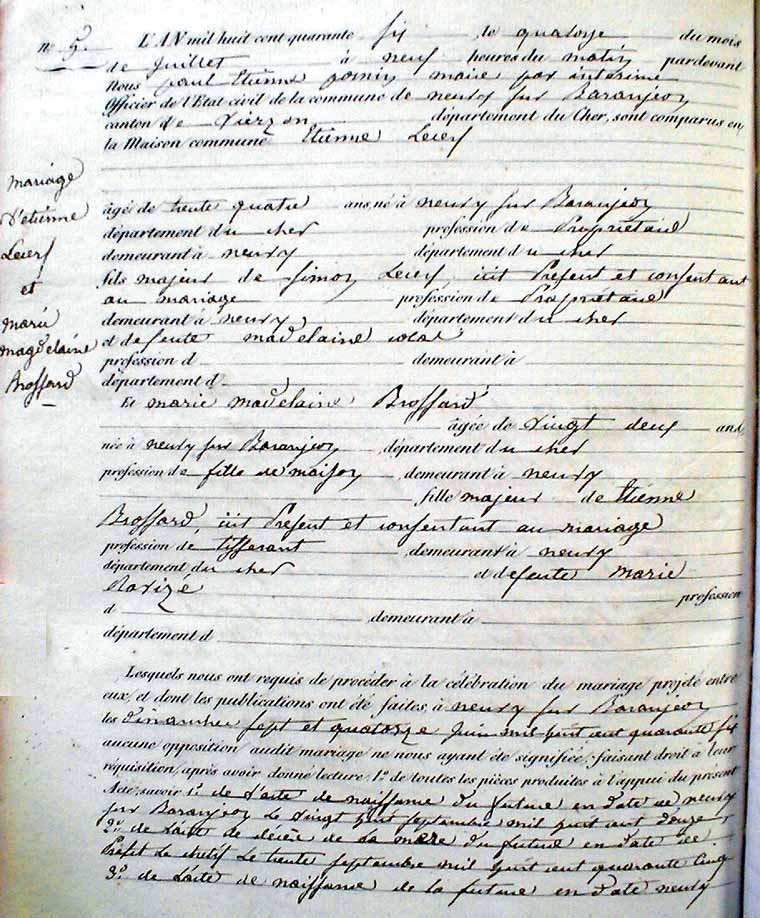 n° 5. L'AN mil huit cent quarante six le quatorze du mois
de juillet à neuf heures du matin pardevant
Nous paul Etienne maire par interime
Officier de l'Etat civil de la commune de neuvy sur Baranjeon
canton de Vierzon département du Cher, sont comparus en
la Maison commune Etienne Leclerf
mariage
d'etienne
Leclerf
et
marie
magdelaine
Brossard
âgé de trente quatre ans né à neuvy sur Baranjeon
département du cher profession de Propriétaire
demeurant à neuvy département du cher
fils majeur de simon Leclerf icit Present et consentant
au mariage profession de Propriétaire
demeurant à neuvy département du cher
et defeute madelaine
profession d demeurant à
département d
Et marie madelaine Brossard
âgée de vingt deux ans
née à neuvy sur Baranjeon département du cher
profession de fille de maison demeurant à neuvy
fille majeur de Etienne
Brossard, icit Present et consentant au mariage
profession de tisserant demeurant à neuvy
département du cher et defeute Marie
profession
d demeurant à
département d
Lesquels nous ont requis de procéder à la célébration du mariage projeté entre
eux, et dont les publications ont été faites à neuvy sur Baranjeon
les dimanche sept et quatorze juin mil huit cent quarante six
aucune opposition audit mariage ne nous ayant été signifiée; faisant droit à leur
réquisition, après avoir donné lecture: 1° de toutes les pièces produites à l'appui du présent
Acte, savoir 1° de l'acte de naissance du future en date de neuvy
sur Baranjeon Le vingt huit septembre mil huit cent douze
2° de l'acte de décès de La mere du future en date de
Le trente septembre mil huit cent quarante cinq
3° de l'acte de naissance de la future en date neuvy